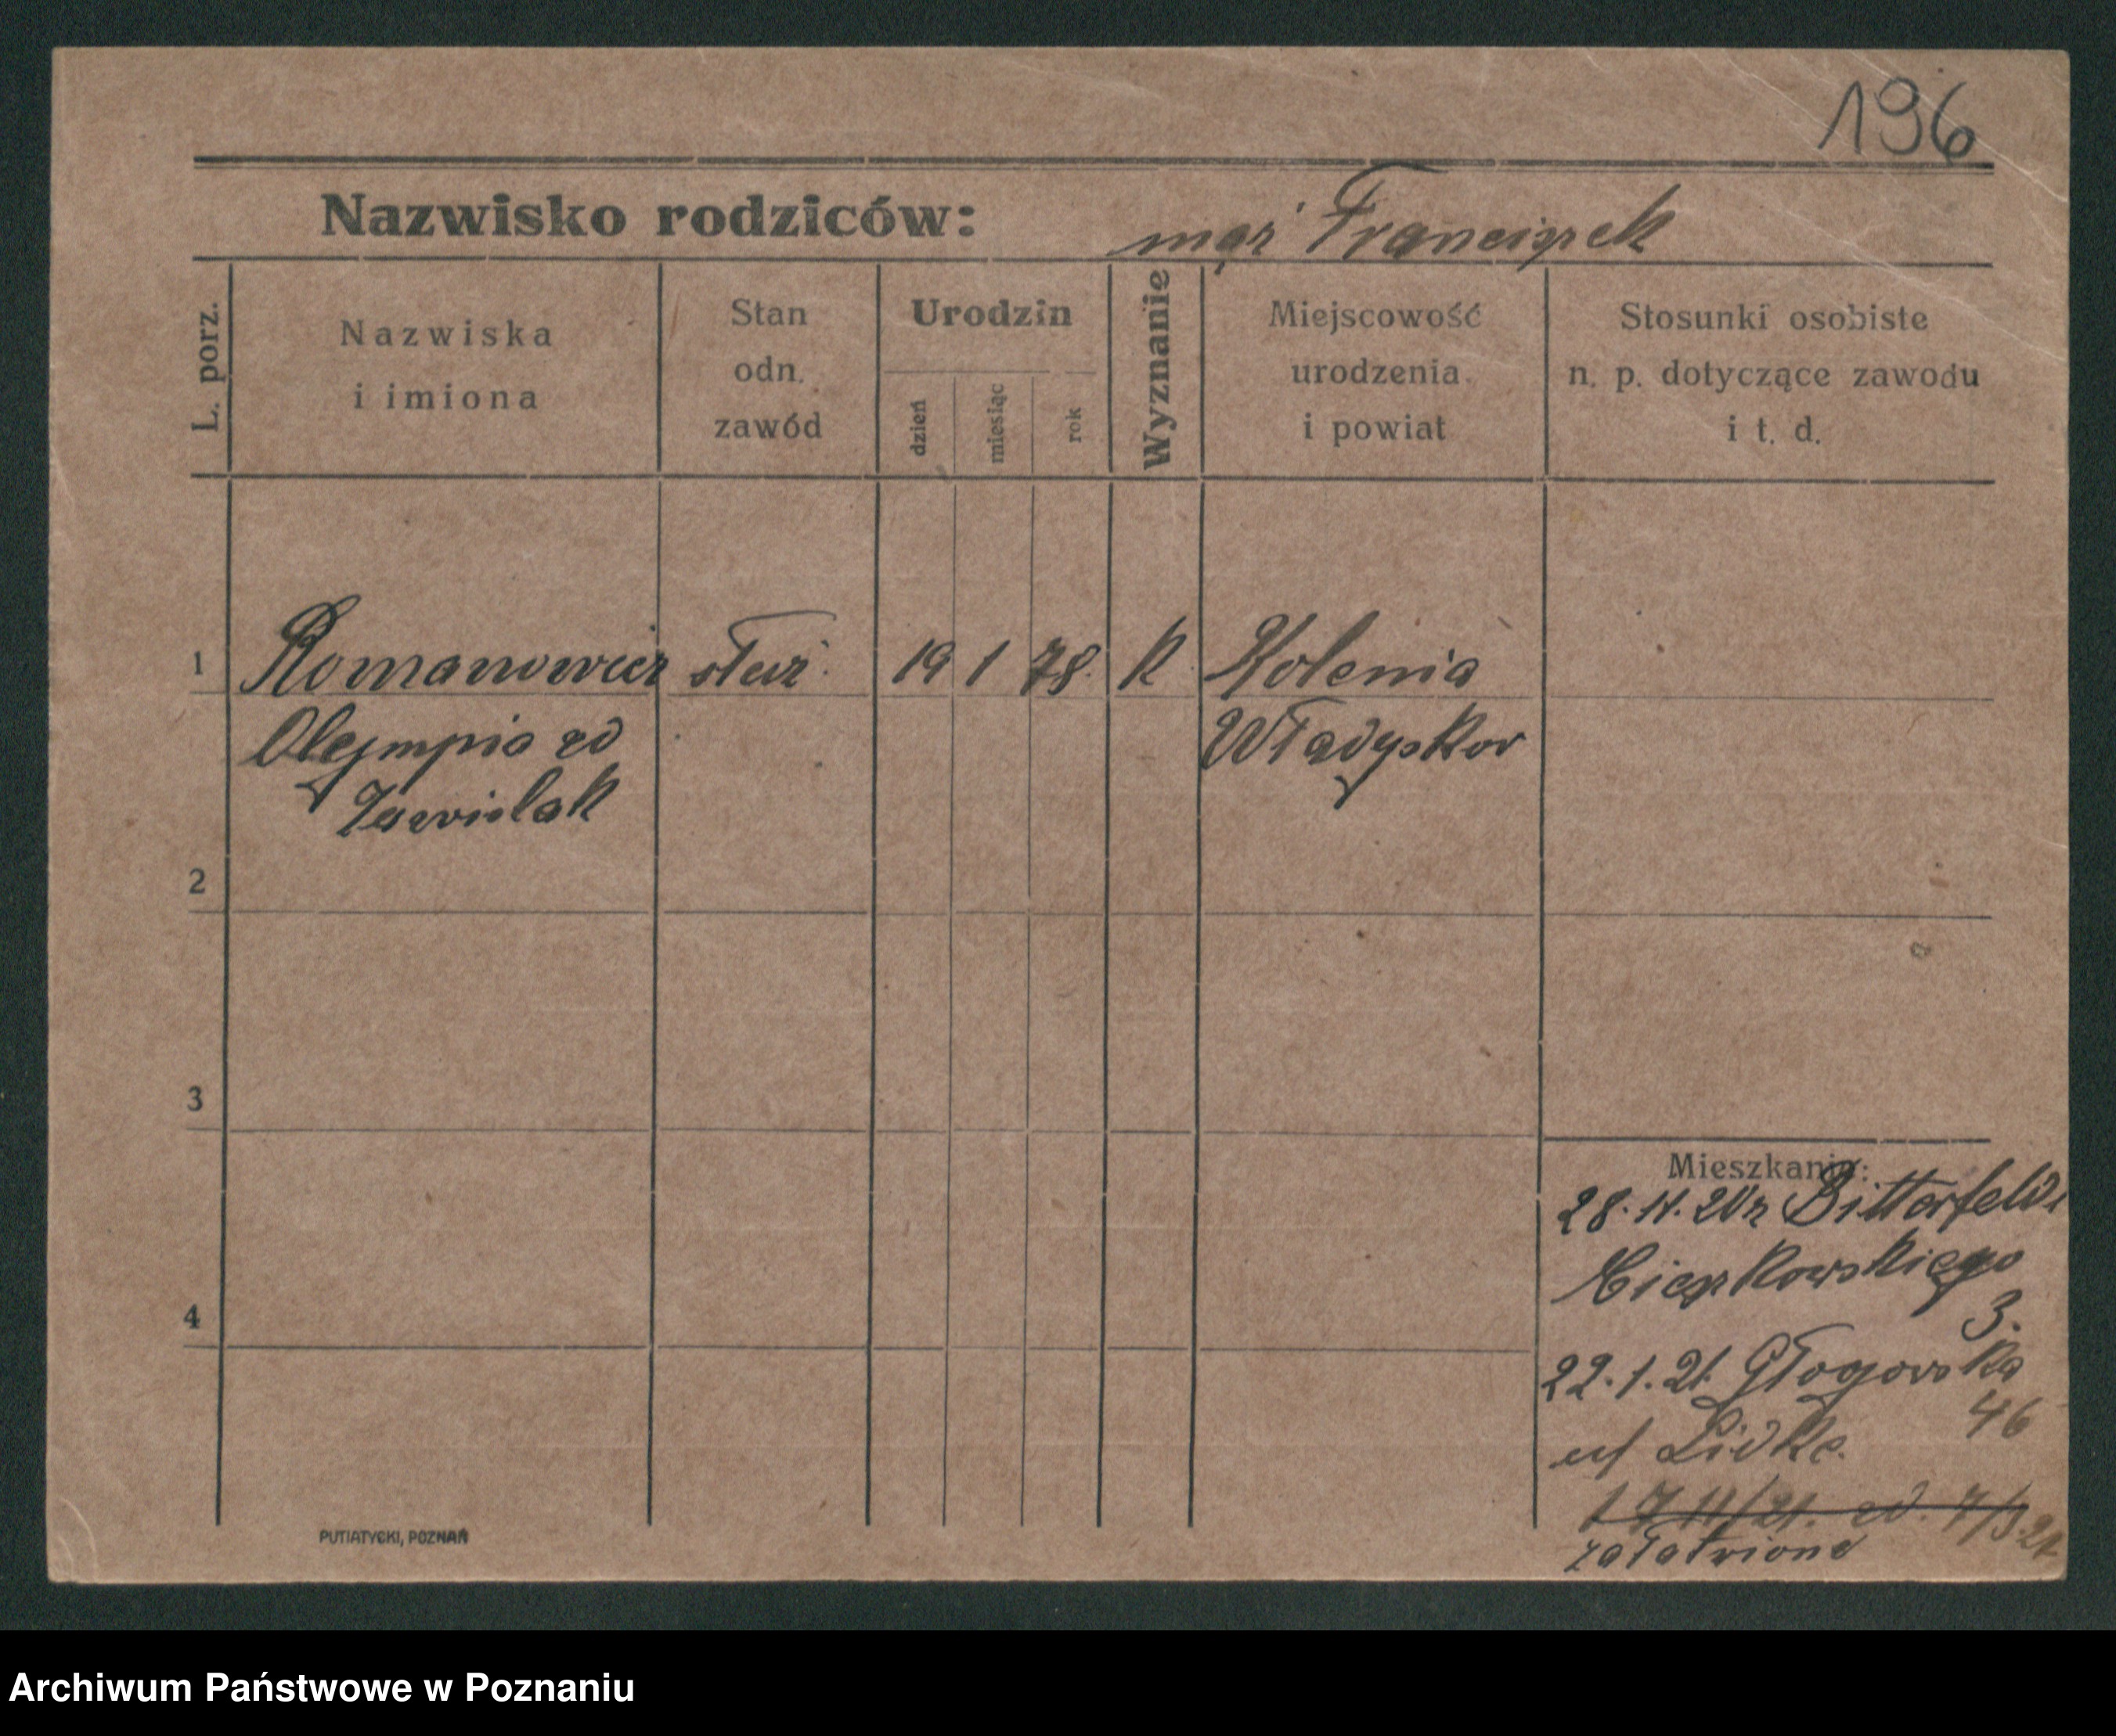 196
Nazwisko rodziców: mąż Franciszek
L. porz.
Nazwiska
i imiona
Stan
odn.
zawód
Urodzin
dzień
miesiąc
rok
Wyznanie
Miejscowość
urodzenia
i powiat
Stosunki osobiste
n. p. dotyczące zawodu
i t. d.
1 Romanowicz służ. 19 1 78. k Kolenia
Olympia zd Władyskov
2
3
4
Mieszkanie:
28.11.20 z Bitterfeld
Cieszkowskiego
3.
22.1.21. Głogowska
46
Lidke.
załatwione
PUTIATYCKI, POZNAŃ
Archiwum Państwowe w Poznaniu